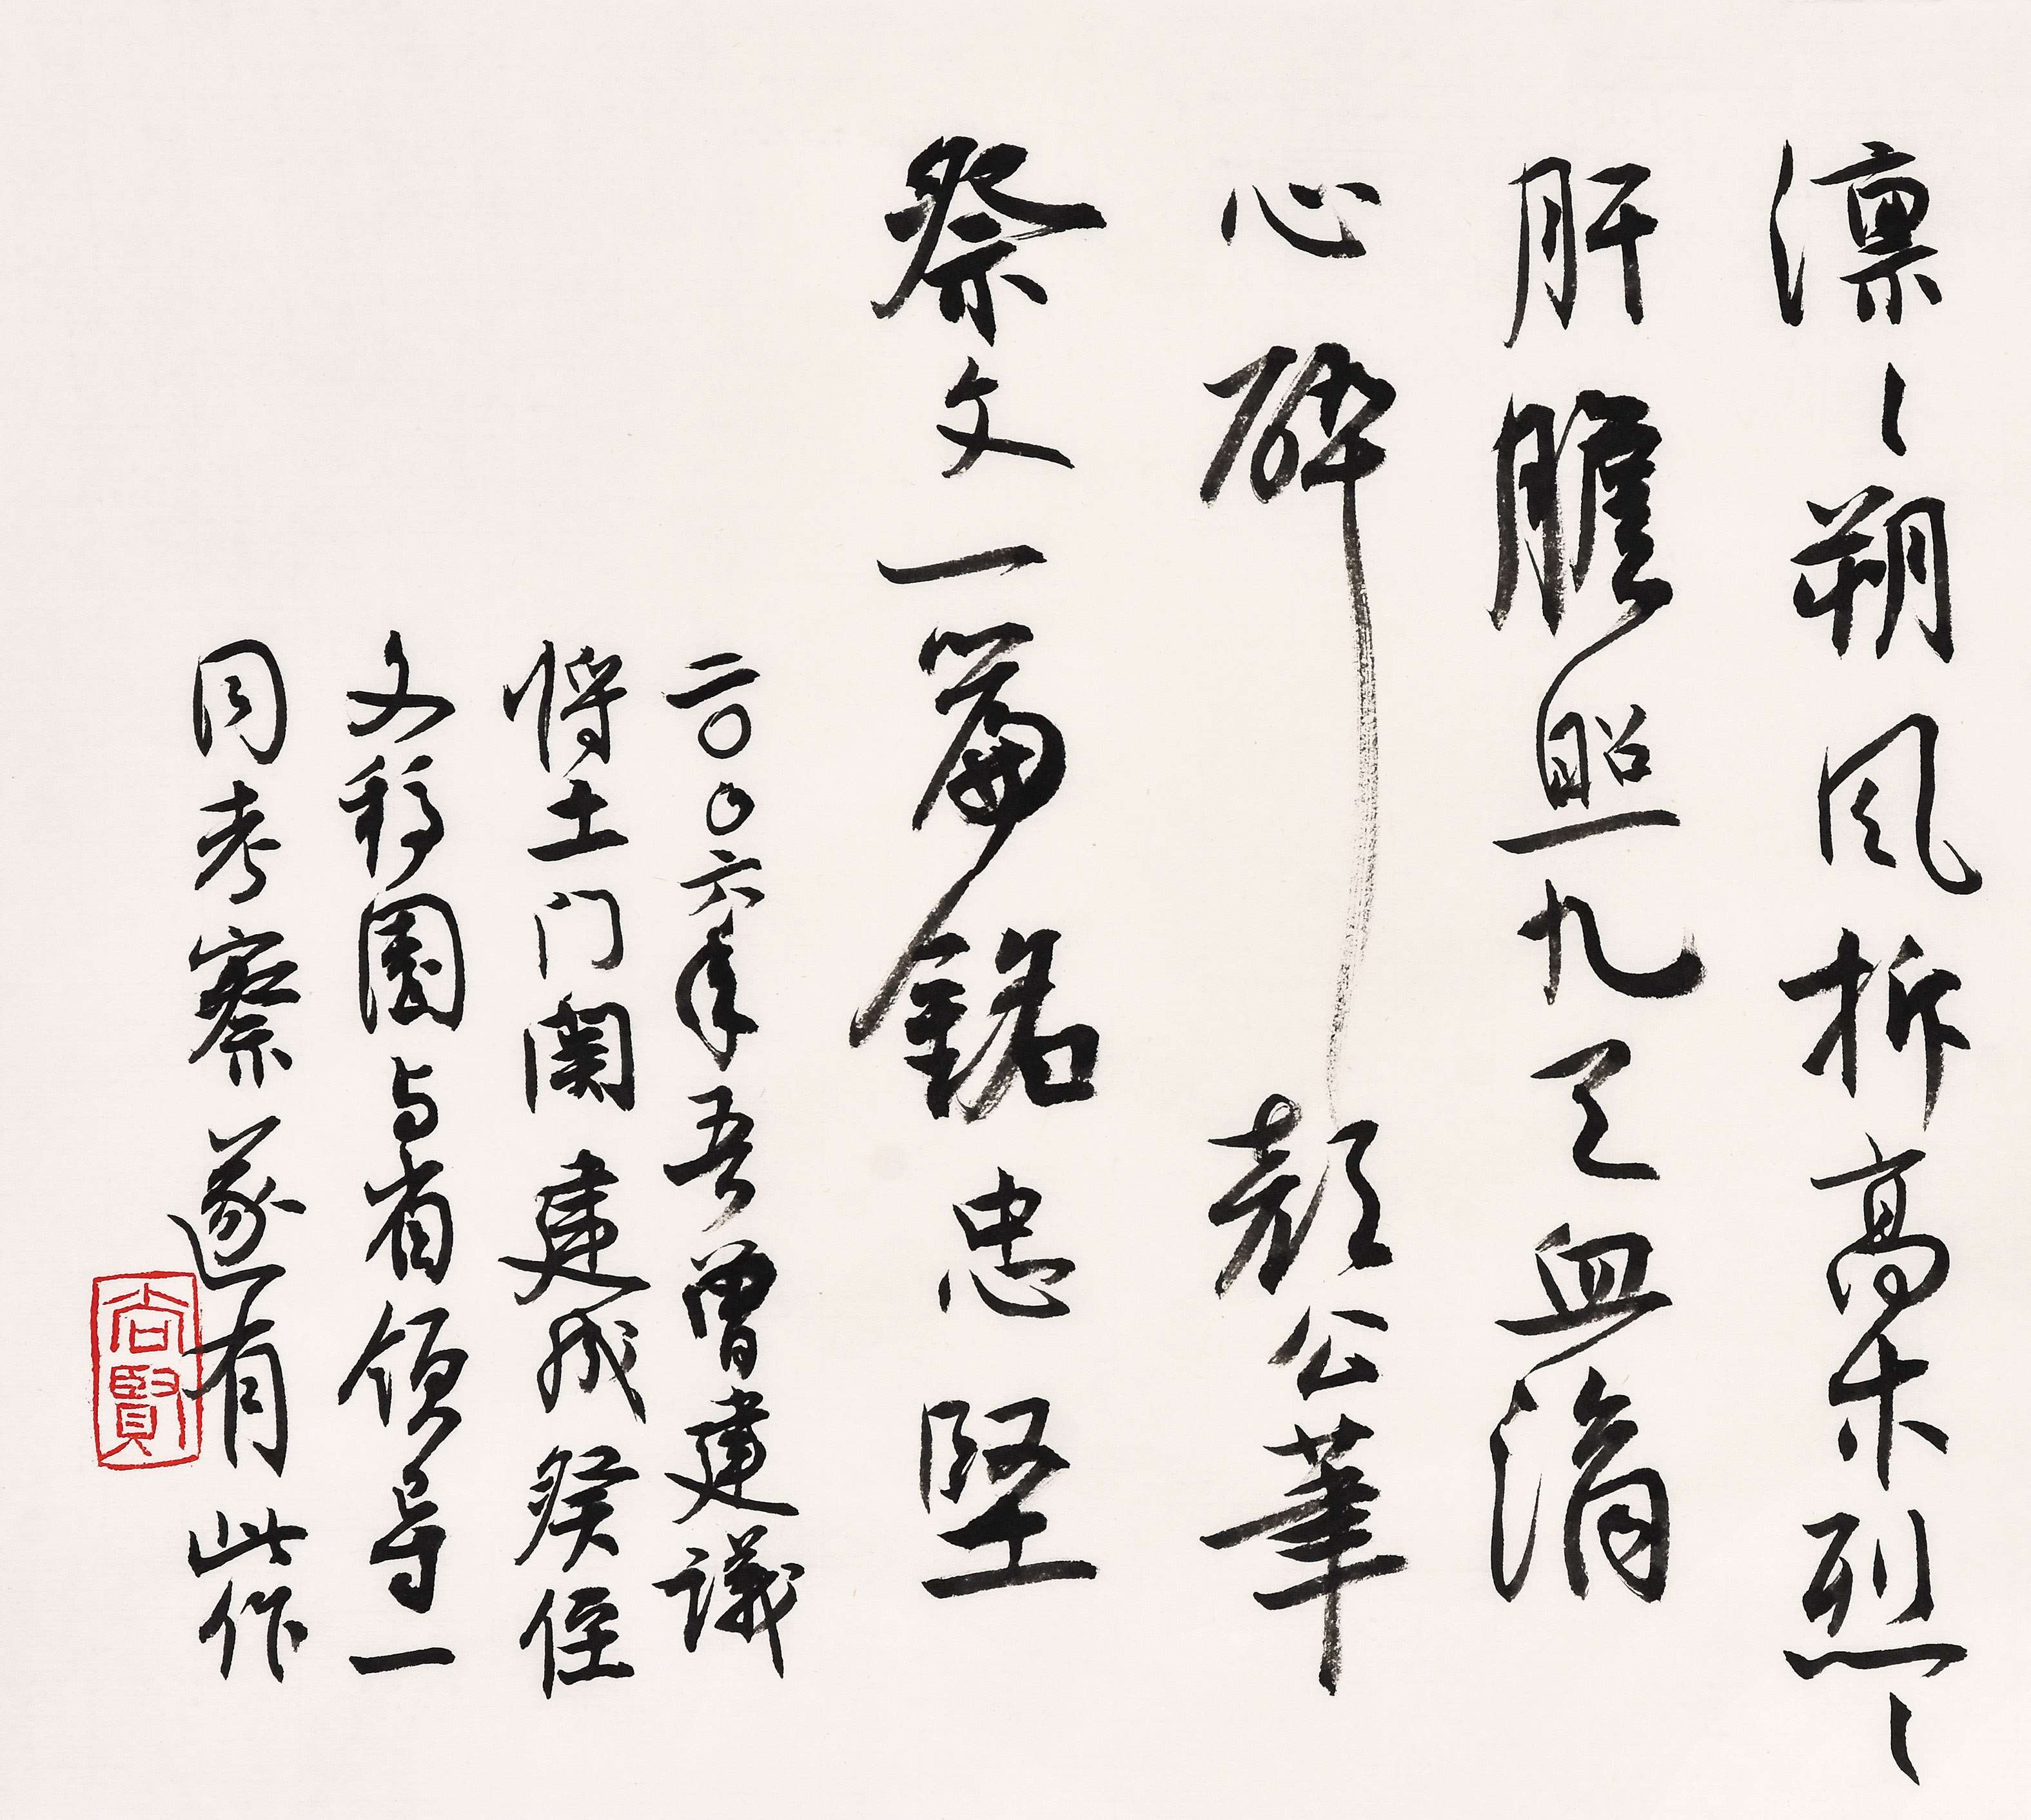 凛丶朔风折高木烈丶
肝胆照九天血涓
心碎颜公笔
祭文一篇铭忠坚
二〇〇六年吾曾建议
将土门关建成祭侄
文稿园与省领导一
同考察遂有此作
尚賢